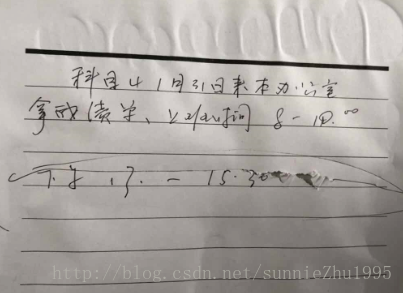 科目4 1月31日来本办公室
拿成绩单、 时间 8-10.00
下午 .3. - 15.30
http://blog.csdn.net/sunnieZhu1995